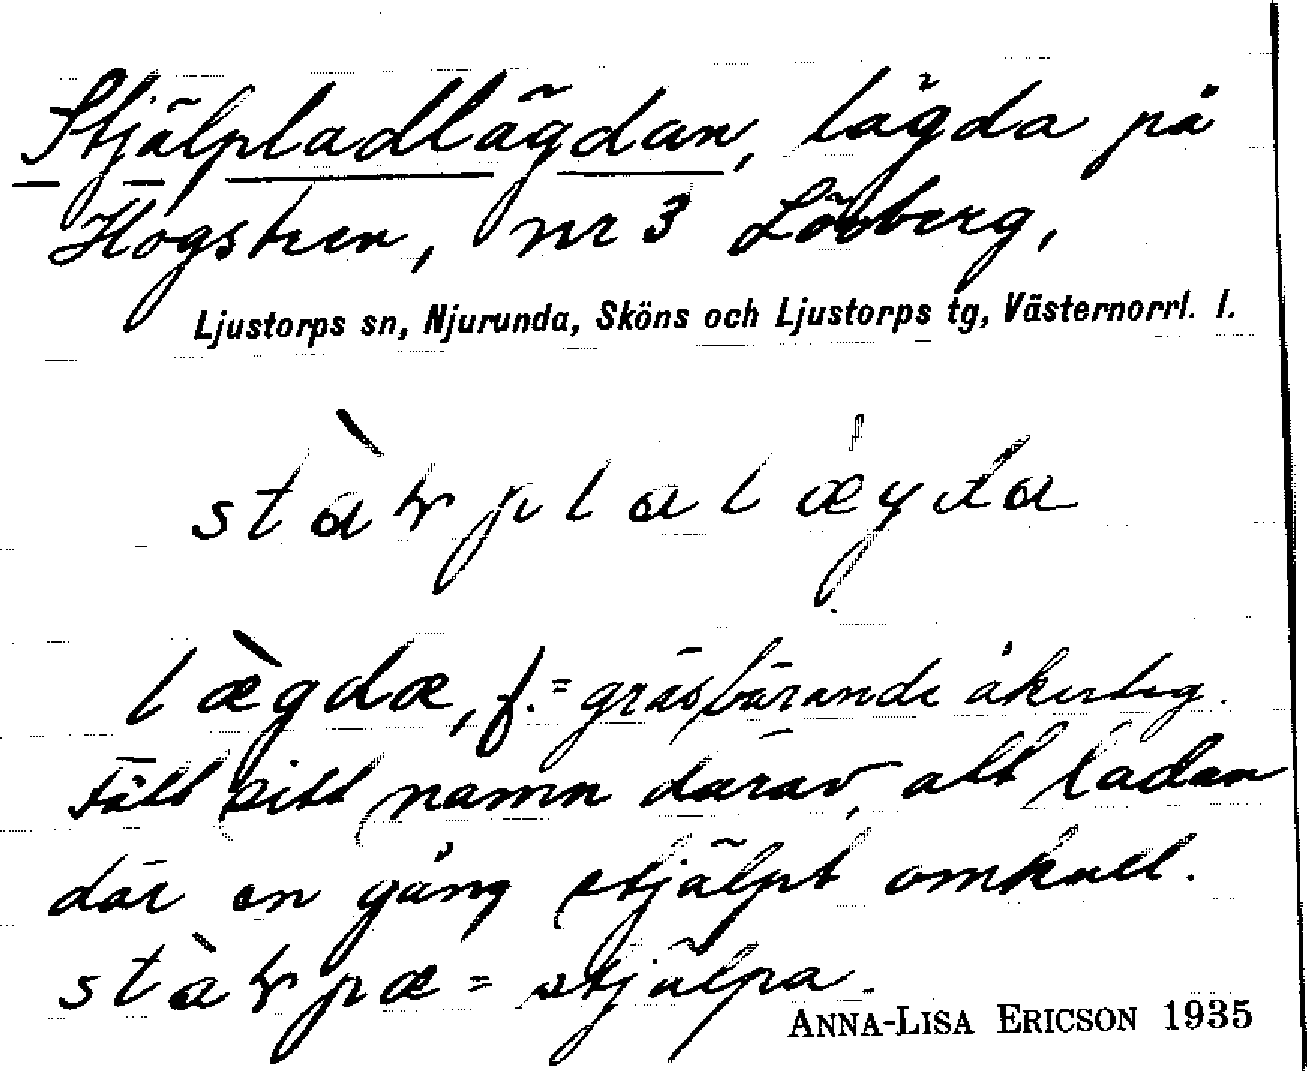 Stjälpladlägdan, lägda på
Högsten, nr 3 Lövberg,
Ljustorps sn, Njurunda, Sköns och Ljustorps tg, Västernorrl. l.
stàɽplalægda
lægdæ, f. = gräsbärande åkerteg.
Fått sitt namn därav, att ladan
där en gång stjälpt omkull.
stàɽpæ = stjälpa.
ANNA-LISA ERICSON 1935